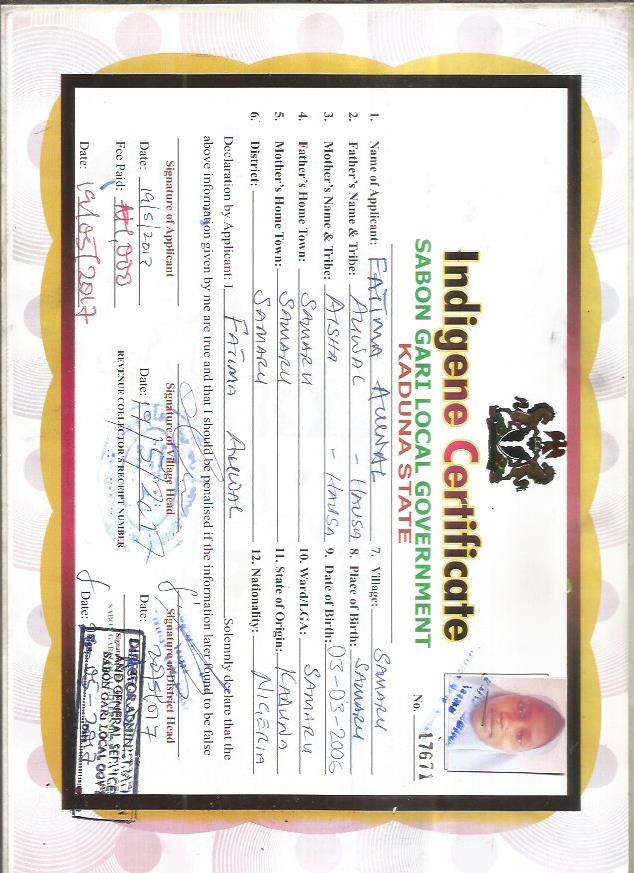 Indigene Certificate
SABON GARI LOCAL GOVERNMENT
KADUNA STATE
No. 17671
1. Name of Applicant: FATIMA AUWAL
2. Father's Name & Tribe: AUWAL - HAUSA
3. Mother's Name & Tribe: AISHA - HAUSA
4. Father's Home Town: SAMARU
5. Mother's Home Town: SAMARU
6. District: SAMARU
7. Village: SAMARU
8. Place of Birth: SAMARU
9. Date of Birth: 03-03-2006
10. Ward/LGA: SAMARU
11. State of Origin: KADUNA
12. Nationality: NIGERIA
Declaration by Applicant: I, FATIMA AUWAL Solemnly declare that the
above information given by me are true and that I should be penalised if the information later found to be false
Signature of Applicant
Date: 19/5/2017
Fee Paid: ₦1,000
Date: 19/05/2017
Signature of Village Head
Date: 19/5/2017
REVENUE COLLECTOR'S RECEIPT NUMBER
Signature of District Head
Date:
DIRECTOR ADMINISTRAT
AND GENERAL SERVICE
SABON GARI LOCAL GOVT
Date: 05-2017